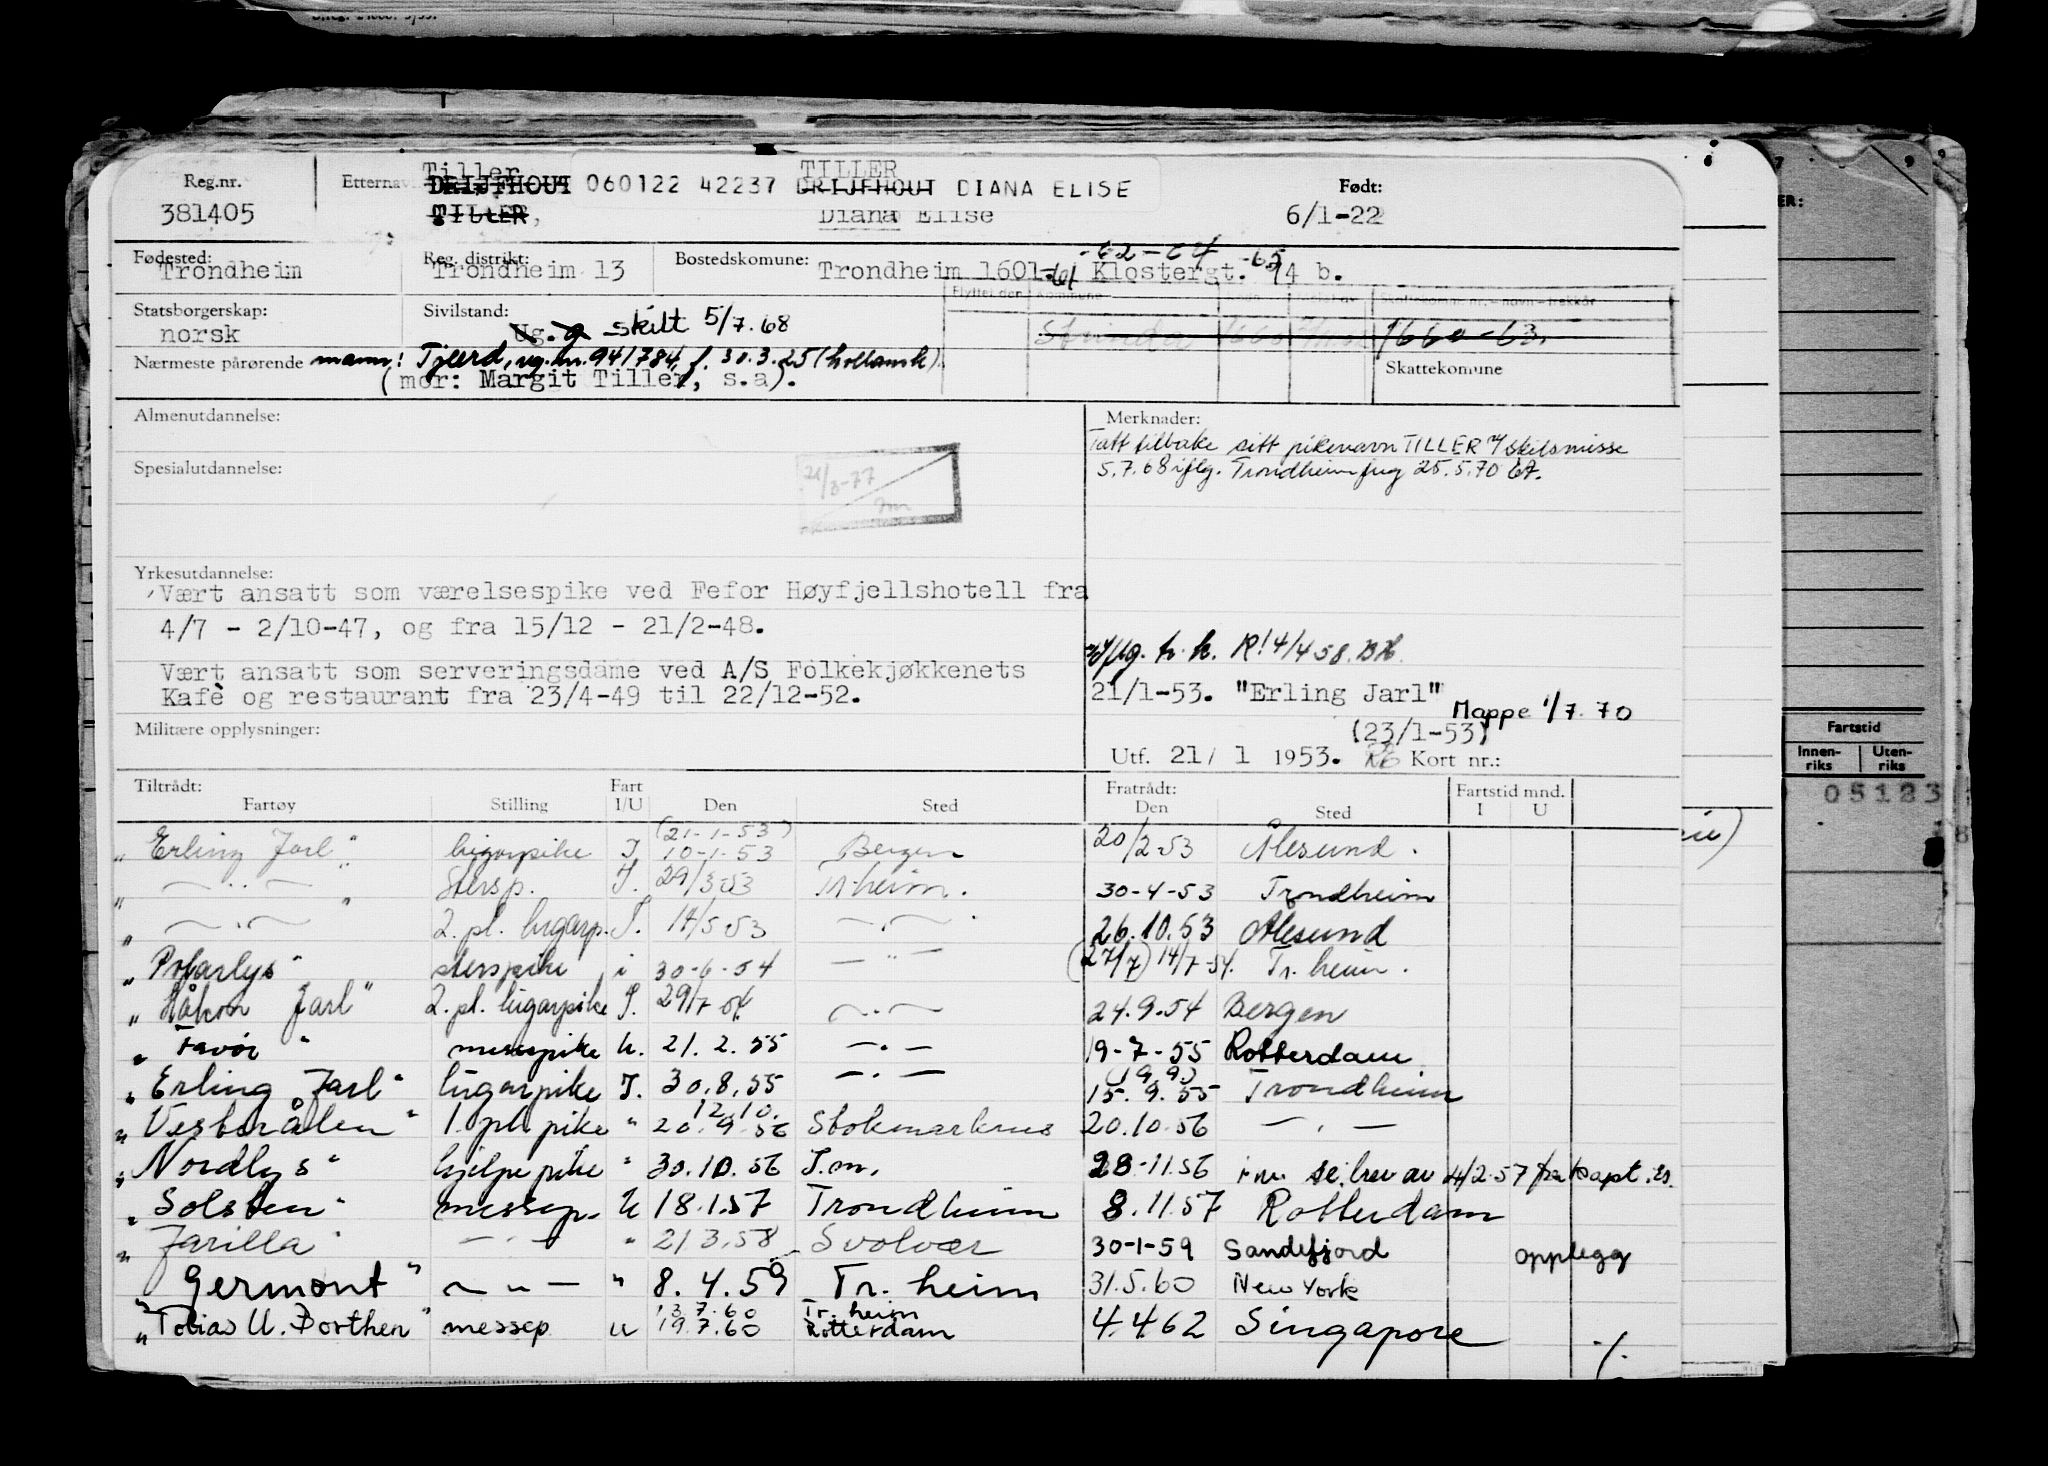 Reg.nr. 381405
Etternavn Tiller DRIJFHOUT 060122 42237 TILLER DRIJFHOUT DIANA ELISE
TILLER, Diana Elise
Født: 6/1-22
Fødested: Trondheim
Reg. distrikt: Trondheim 13
Bostedskommune: Trondheim 1601-61 -62-64 -65 Klostergt. 74 b.
Statsborgerskap: norsk
Sivilstand: Ug. g skilt 5/7.68
Flyttet den Kommune
Strinda 1660 1660-63.
Nærmeste pårørende mann: Tjeerd, reg.nr. 941784, f. 30.3.25 (hollansk)
(mor: Margit Tiller, s.a).
Skattekommune
Almenutdannelse:
Merknader:
Tatt tilbake sitt pikenavn TILLER v/ skilsmisse
5.7.68 iflg. Trondheim 25.5.70
Spesialutdannelse:
21/3-77
Yrkesutdannelse:
Vært ansatt som værelsespike ved Fefor Høyfjellshotell fra
4/7 - 2/10-47, og fra 15/12 - 21/2-48.
Vært ansatt som serveringsdame ved A/S Folkekjøkkenets
Kafè og restaurant fra 23/4-49 til 22/12-52.
iflg. h.k. R! 4/4 58. BH.
21/1-53. "Erling Jarl"
Mappe 1/7.70
(23/1-53)
Militære opplysninger:
Utf. 21/ 1 1953. Kort nr.:
Tiltrådt: Fartøy Stilling Fart I/U Den Sted Fratrådt: Den Sted Fartstid mnd. I U
"Erling Jarl" lugarpike I (21-1-53) 10-1-53 Bergen 20/2-53 Ålesund.
" — " — " Stersp. I. 29/3-53 Tr.heim. 30-4-53 Trondheim
" — " — 2. pl. lugarp. I. 14/5-53 — " — 26.10.53 Ålesund
"Polarlys" sterspike i 30-6-54 — " — (27/7) 14/7-54. Tr.heim.
"Håkon Jarl" 2. pl. lugarpike I. 29/7-54 — " — 24.9.54 Bergen
"Favör" messepike U. 21.2.55 — " — 19-7-55 Rotterdam
"Erling Jarl" lugarpike I. 30.8.55 — " — (9.9) 15.9.55 Trondheim
"Vesterålen" 1. pl. pike " 12.10. 20.9.56 Stokmarknes 20.10.56 — " —
"Nordlys" hjelpepike " 30.10.56 T.m. 28-11.56 T.m. se brev av 4/2-57 fra kapt.
"Solsten" messep. U 18.1.57 Trondheim 8.11.57 Rotterdam
"Jarilla" — " — " 21.3.58 Svolvær 30-1-59 Sandefjord opplegg
"Germont" — " — " 8.4.59 Tr.heim 31.5.60 New York
"Tobias U. Borthen" messep u 13.7.60 19.7.60 Tr.heim Rotterdam 4.4.62 Singapore
./.
Fartstid
Innenriks Utenriks
05123